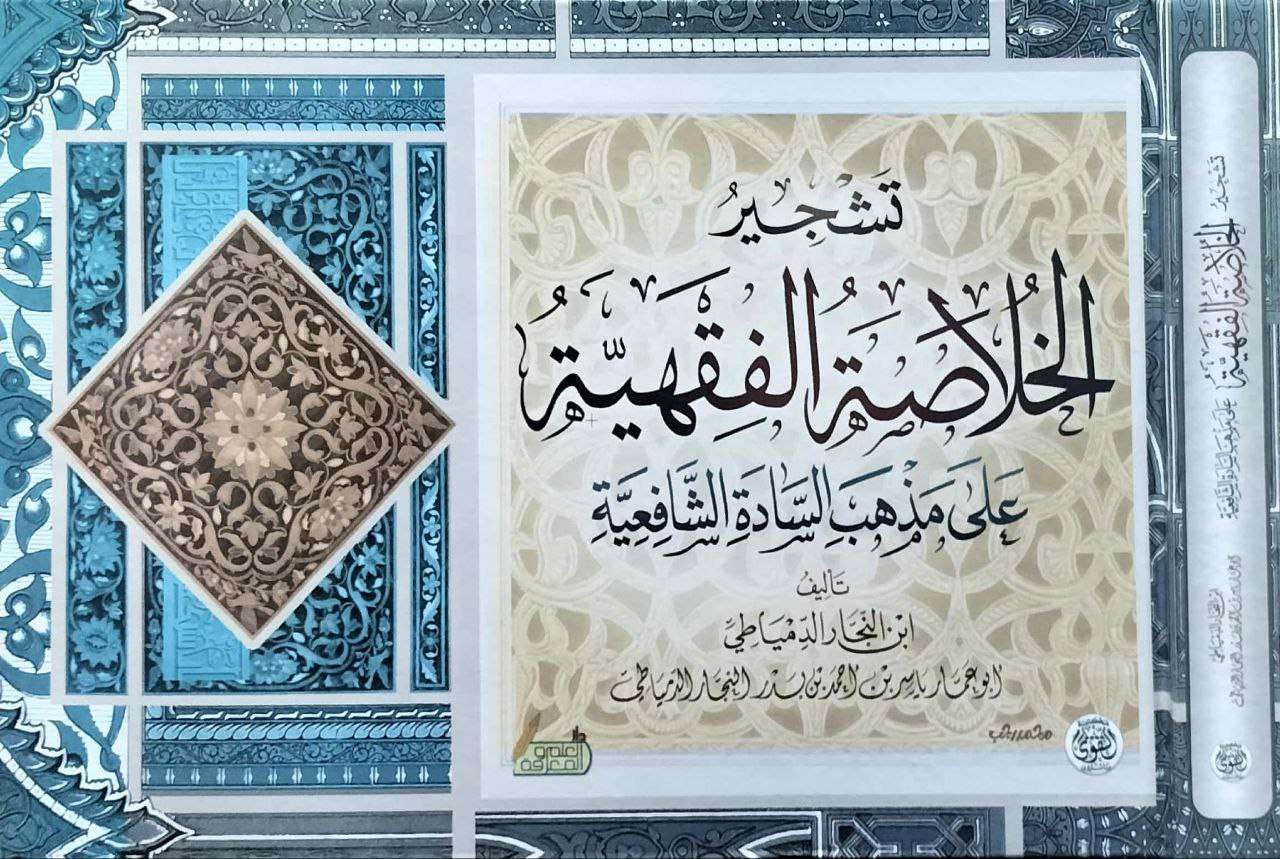 تَشْجِيرُ
الخُلَاصَةِ الفِقْهِيَّةِ
عَلَى مَذْهَبِ السَّادَةِ الشَّافِعِيَّةِ
تَأْلِيفُ
ابْنِ النَّجَّارِ الدِّمْيَاطِيِّ
أبو عمار ياسر بن أحمد بن بدر النجار الدمياطي
دار
العلم و
المعرفة
التقوى
تَشْجِيرُ الخُلَاصَةِ الفِقْهِيَّةِ عَلَى مَذْهَبِ السَّادَةِ الشَّافِعِيَّةِ
التقوى